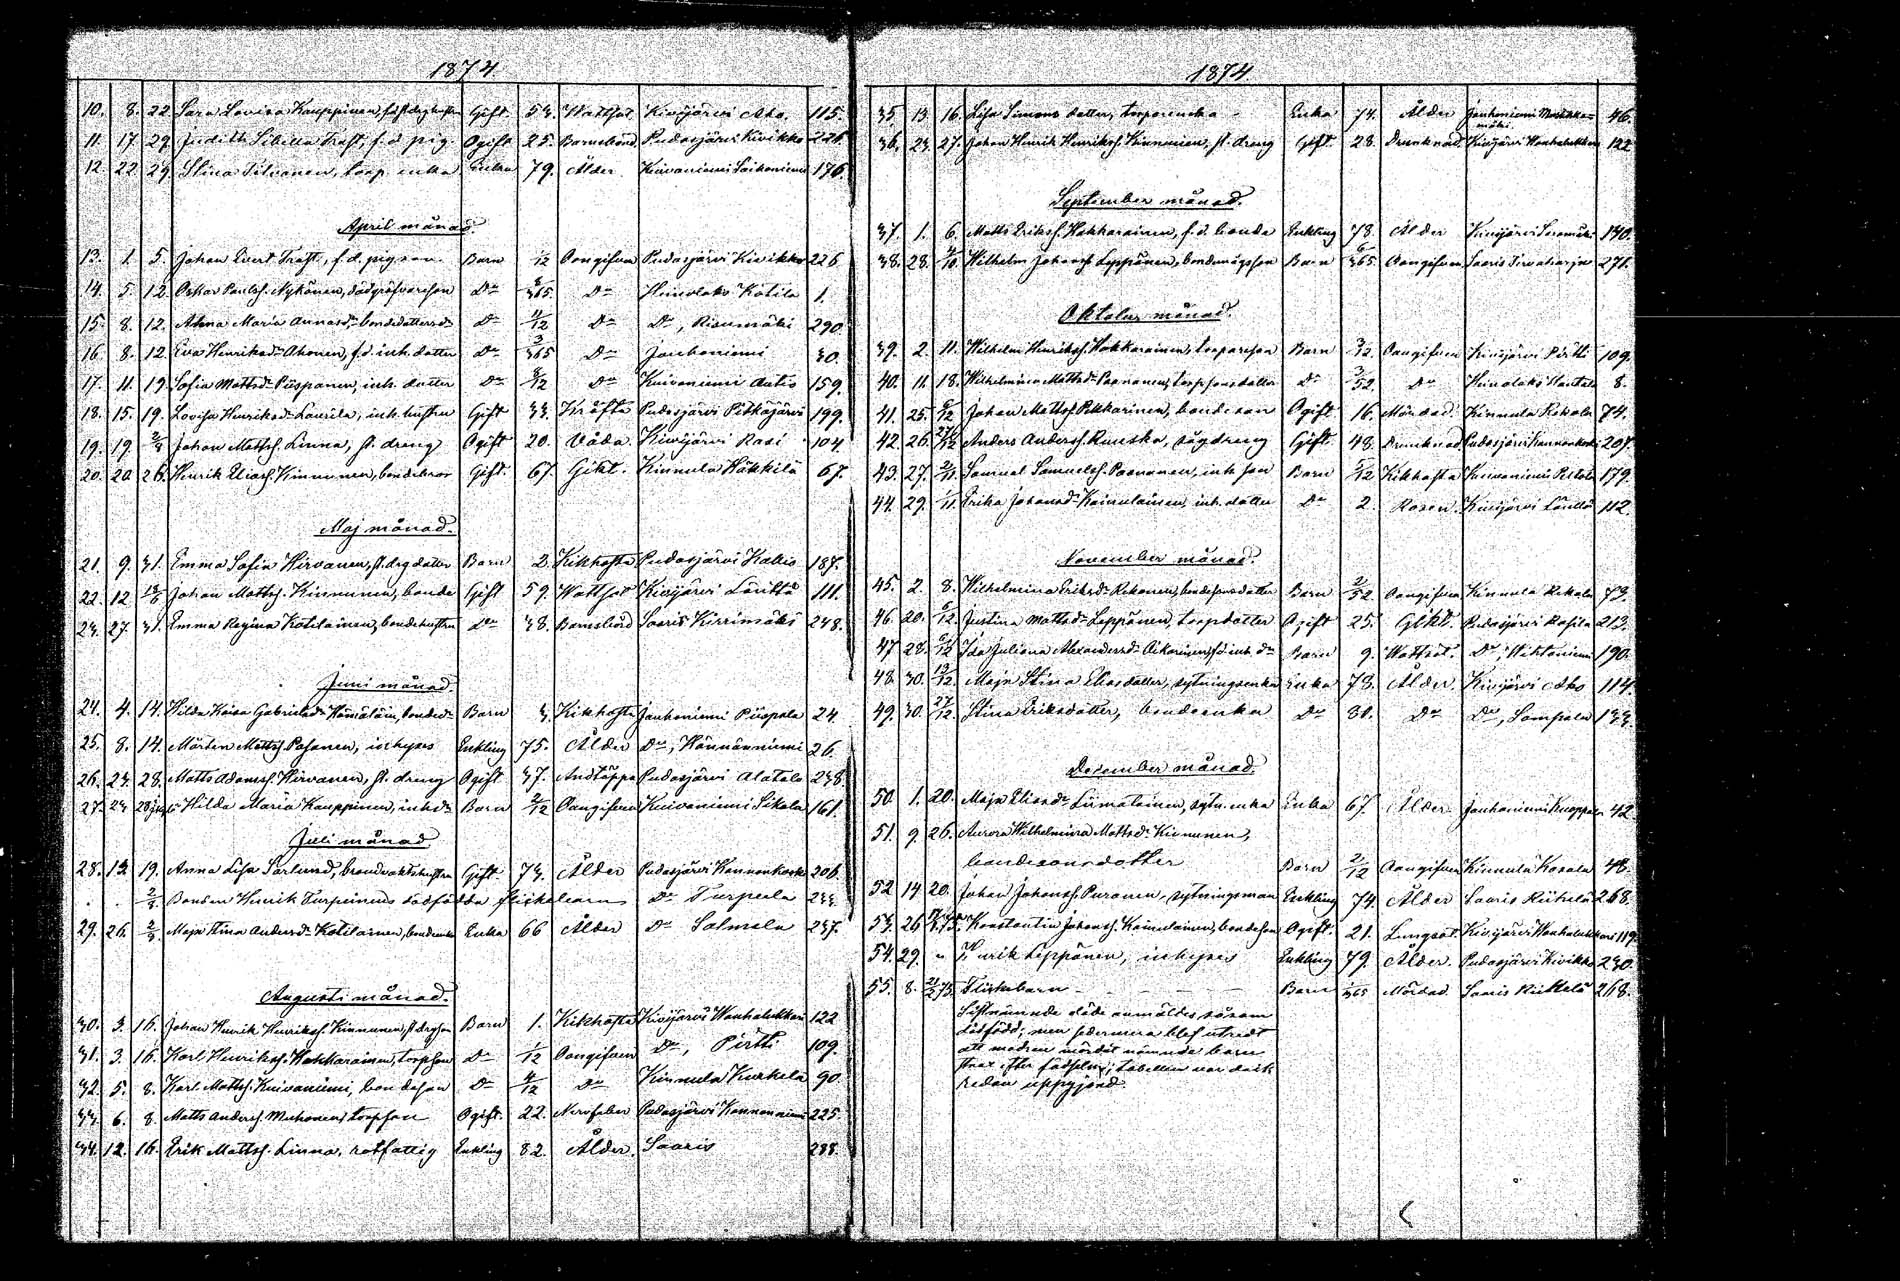 1874
10. 8. 22. Sara Lovisa Kauppinen, Gift. 53. Wattsot. Kivijärvi Aho. 115.
11. 17. 29. Judith Sibella Trast, f.d. pig. Ogift. 25. Barnsbörd. Pudasjärvi Kivikko 226.
12. 22. 29. Stina Tituonen, torp. enka Enka 79. Ålder. Kuivaniemi 176.
April månad.
13. 1. 5. Johan Evert Trast, f.d. pigson. Barn /12 Oangifven Pudasjärvi Kivikko 226
14. 5. 12. Oskar Paulss. Nykänen, Do /365 Do Heinolaks Kotila 1.
15. 8. 12. Anna Maria Annasdr bondedottersdr Do 4/12 Do Do, Risumäki 290.
16. 8. 12. Eva Henriksdr Ahonen, f.d. inh. dotter Do 3/365 Do Jauhoniemi 30.
17. 11. 19. Sofia Mattsdr Piispanen, inh. dotter Do 8/12 Do Kuivaniemi Autio 159.
18. 15. 19. Lovisa Henriksdr Laurila, inh. hustru Gift 33. Kräfta Pudasjärvi Pitkäjärvi 199.
19. 19. 2/3 Johan Mattss. Linna, st. dreng Ogift 20. Våda. Kivijärvi Rasi 104.
20. 20. 26. Henrik Eliass. Kinnunen, bondebror Gift. 67. Gikt. Kinnula Häkkilä 67.
Maj månad.
21. 9. 31. Emma Sofia Hirvanen, st. drg dotter Barn 2. Kikhosta Pudasjärvi Kallio 187.
22. 12. /6 Johan Mattss. Kinnunen, bonde Gift 59. Wattsot Kivijärvi Länttä 111.
23. 27. 31. Emma Regina Kotilainen, bondehustru Do 38. Barnsbörd Saaris Kirrimäki 248.
Juni månad
24. 4. 14. Hilda Kaisa Gabrielsdr Hämäläin, bondedr Barn 3. Kikhosta Jauhoniemi Piispala 24.
25. 8. 14. Mårten Mattss. Pasanen, inhyses Enkling 75. Ålder Do, Hännänniemi 26.
26. 23. 28. Matts Adamss. Hirvanen, st. dreng Ogift 37. Andtäppa Pudasjärvi Alatalo 238.
27. 23. 28 Hilda Maria Kauppinen, inhdr Barn 2/12 Oangifven Kuivaniemi Sikala 161.
Juli månad
28. 13. 19. Anna Lisa Sarlund, brandvaktshustru Gift. 73. Ålder Pudasjärvi Kannonkoski 206.
2/8. Bonden Henrik Turpeinens dödfödda flickebarn Do Turpela 233.
29. 26. 2/8. Maja Stina Andersdr Kotilainen, bondenka Enka 66 Ålder Do Salmela 237.
Augusti månad.
30. 3. 16. Johan Henrik Henrikss. Kinnunen, st. drgson Barn 1. Kikhosta Kivijärvi Wanhalukkari 122
31. 3. 16. Karl Henrikss. Hakkarainen, torpson Do 1/12 Oangifven Do, Pirtti 109.
32. 5. 8. Karl Mattss. Kuivaniemi, bondeson Do 4/12 Do Kinnula Kurkela 90.
33. 6. 8. Matts Anderss. Muhonen, torpson Ogift. 22. Nervfeber Pudasjärvi Kannonniemi 225.
34. 12. 16. Erik Mattss. Linna, rotfattig Enkling 82. Ålder. Saaris 288.
1874.
35. 13. 16. Lisa Simons dotter, torparenka Enka 74. Ålder Jauhoniemi 46.
36. 23. 27. Johan Henrik Henrikss. Kinnunen, st. dreng Gift. 28. Drunknad. Kivijärvi Wanhalukkari 122
September månad.
37. 1. 6. Matts Erikss. Hakkarainen, f.d. bonde Enkling 78. Ålder Kivijärvi 130.
38. 28. 4/10. Wilhelm Johanss Leppänen, bondemågsson Barn 6/365. Oangifven Saaris 271.
Oktober månad.
39. 2. 11. Wilhelm Henrikss. Hakkarainen, torpareson Barn 3/12 Oangifven Kivijärvi Pirtti 109.
40. 11. 18. Wilhelmina Mattsdr Paananen, torpsonsdotter Do 3/52. Do Heinolaks Rantala 8.
41. 25. 6/12 Johan Mattss. Pekkarinen, bondeson Ogift 16. Mördad. Kinnula Rekola 74.
42. 26. 27/12 Anders Anderss. Ruuska, sågdreng Gift. 48. Drunknad Pudasjärvi Kannonkoski 207.
43. 27. /11. Samuel Samuelss. Paananen, inh. son Barn 5/12 Kikhosta Kuivaniemi 179.
44. 29. 1/11. Erika Johansdr Kainulainen, inh. dotter Do 2. Rosen. Kivijärvi Länttä 112.
November månad.
45. 2. 8. Wilhelmina Eriksdr Rekonen, bondesonsdotter Barn 2/52. Oangifven Kinnula Rekola 73.
46. 20. 6/12. Justina Mattsdr Leppänen, torpdotter Ogift 25. Gikt. Pudasjärvi 213.
47. 28. 6/12 Ida Juliana Alexandersdr Oikarinen, f.d. inh. dr Barn 9. Wattsot. Do, 190.
48. 30. 13/12. Maja Stina Eliasdotter, sytningsenka Enka 78. Ålder. Kivijärvi Aho 114.
49. 30. 27/12. Stina Eriksdotter, bondeenka Do 81. Do Do, Lampela 133.
December månad.
50. 1. 20. Maja Eliasdr Liimatainen, sytn. enka Enka 67. Ålder Jauhoniemi Knuppala 42
51. 9. 26. Aurora Wilhelmina Mattsdr Kinnunen,
bondesonsdotter Barn 2/12 Oangifven Kinnula Kosola 48.
52 14 20. Johan Johanss. Puranen, sytningsman Enkling 74. Ålder Saaris Riihelä 268.
53. 26 75. Konstantin Johanss. Kainulainen, bondeson Ogift. 21. Lungsot. Kivijärvi Wanhalukkari 119.
54. 29. " Henrik Leppänen, inhyses Enkling 79. Ålder. Pudasjärvi Kivikko 230.
55. 8. 21/2 75. Flickebarn Barn 1/365 Mördad. Saaris Riihelä 268.
Sistnämnde döde anmäldes såsom
dödfödd; men sedermera blef utredt
att modren mördat nämnde barn
strax efter födseln; tabellen var dock
redan uppgjord.